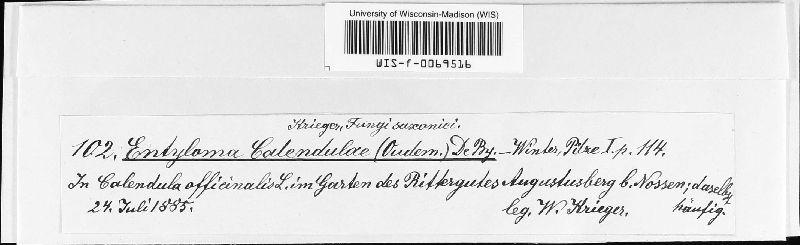 University of Wisconsin-Madison (WIS)
WIS-f-0069516
Krieger, Fungi saxonici.
102. Entyloma Calendulae (Oudem.) De By. – Winter, Pilze I. p. 114.
In Calendula officinalis L. im Garten des Rittergutes Augustusberg b. Nossen; daselbst
24. Juli 1885. leg. W. Krieger. häufig.